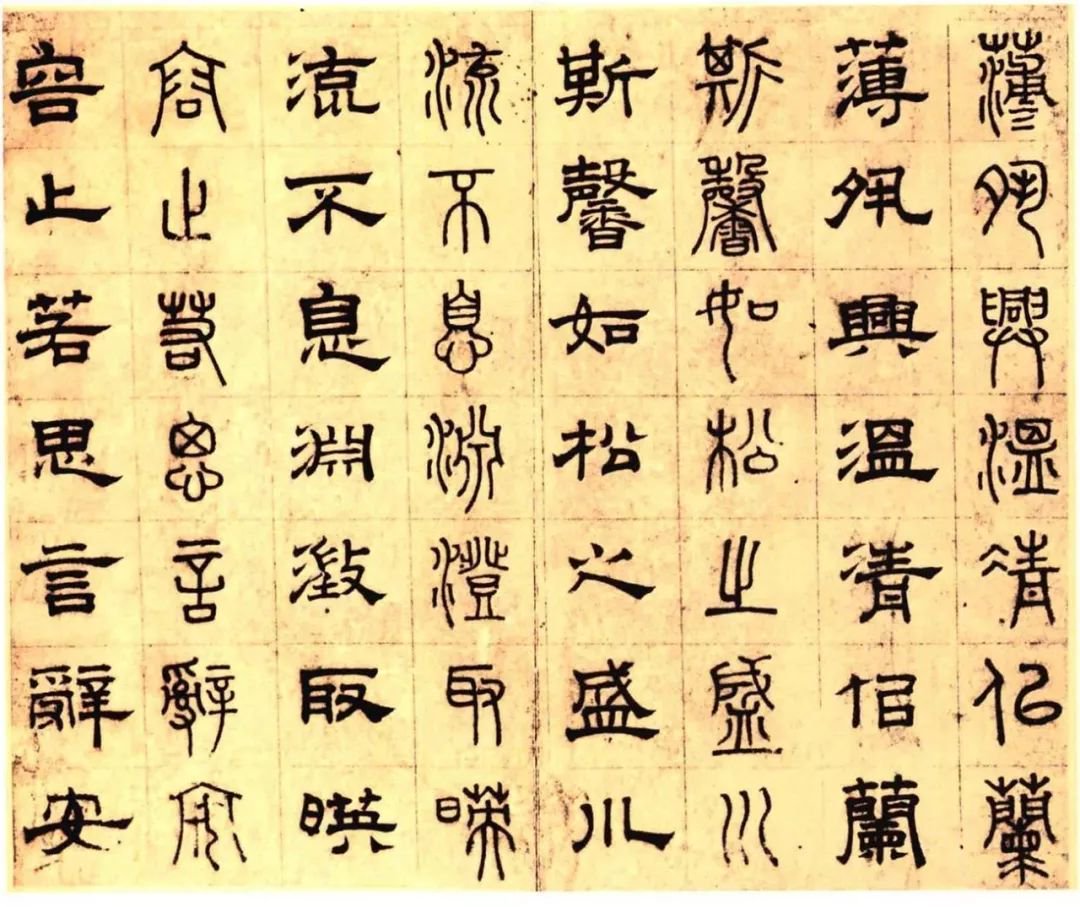 薄夙興溫凊似蘭
薄夙興溫凊佀蘭
斯馨如松之盛川
斯馨如松之盛川
流不息淵澄取暎
流不息淵澂取暎
容止若思言辭安
容止若思言辭安